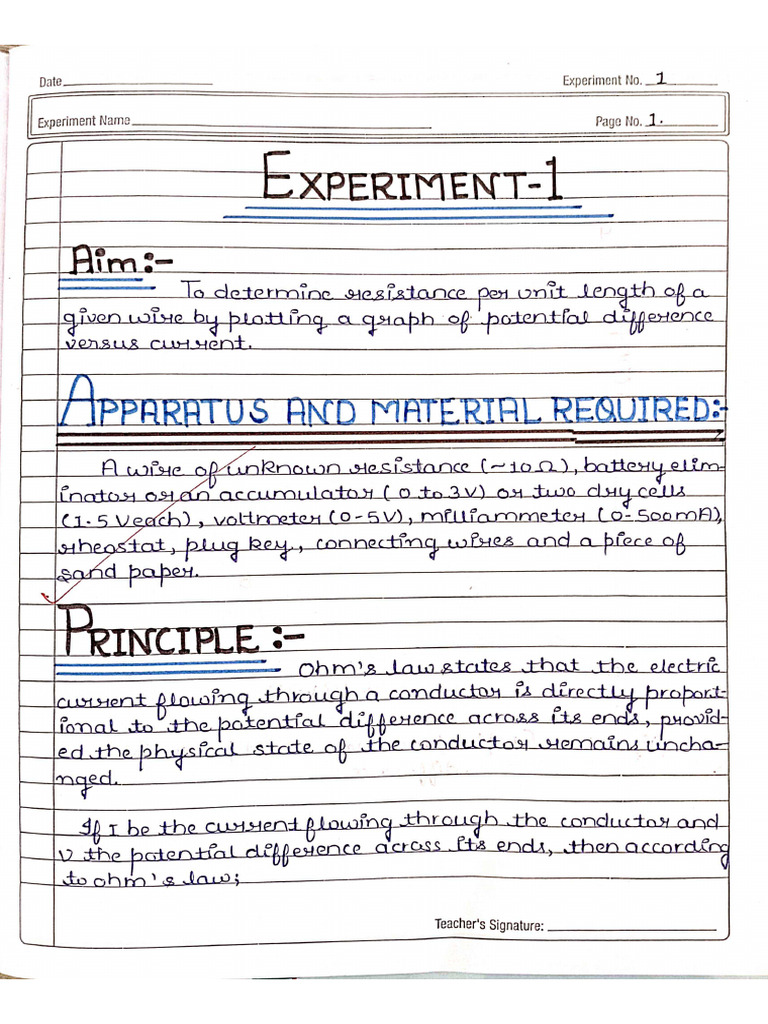 Date
Experiment No. 1
Experiment Name
Page No. 1.
EXPERIMENT-1
Aim:-
To determine resistance per unit length of a
given wire by plotting a graph of potential difference
versus current.
APPARATUS AND MATERIAL REQUIRED:-
A wire of unknown resistance (~10Ω), battery elim-
inator or an accumulator (0 to 3V) or two dry cells
(1.5 V each), voltmeter (0-5V), milliammeter (0-500mA),
rheostat, plug key, connecting wires and a piece of
sand paper.
PRINCIPLE :-
Ohm's law states that the electric
current flowing through a conductor is directly proport-
ional to the potential difference across its ends, provid-
ed the physical state of the conductor remains uncha-
nged.
If I be the current flowing through the conductor and
V the potential difference across its ends, then according
to ohm's law;
Teacher's Signature: